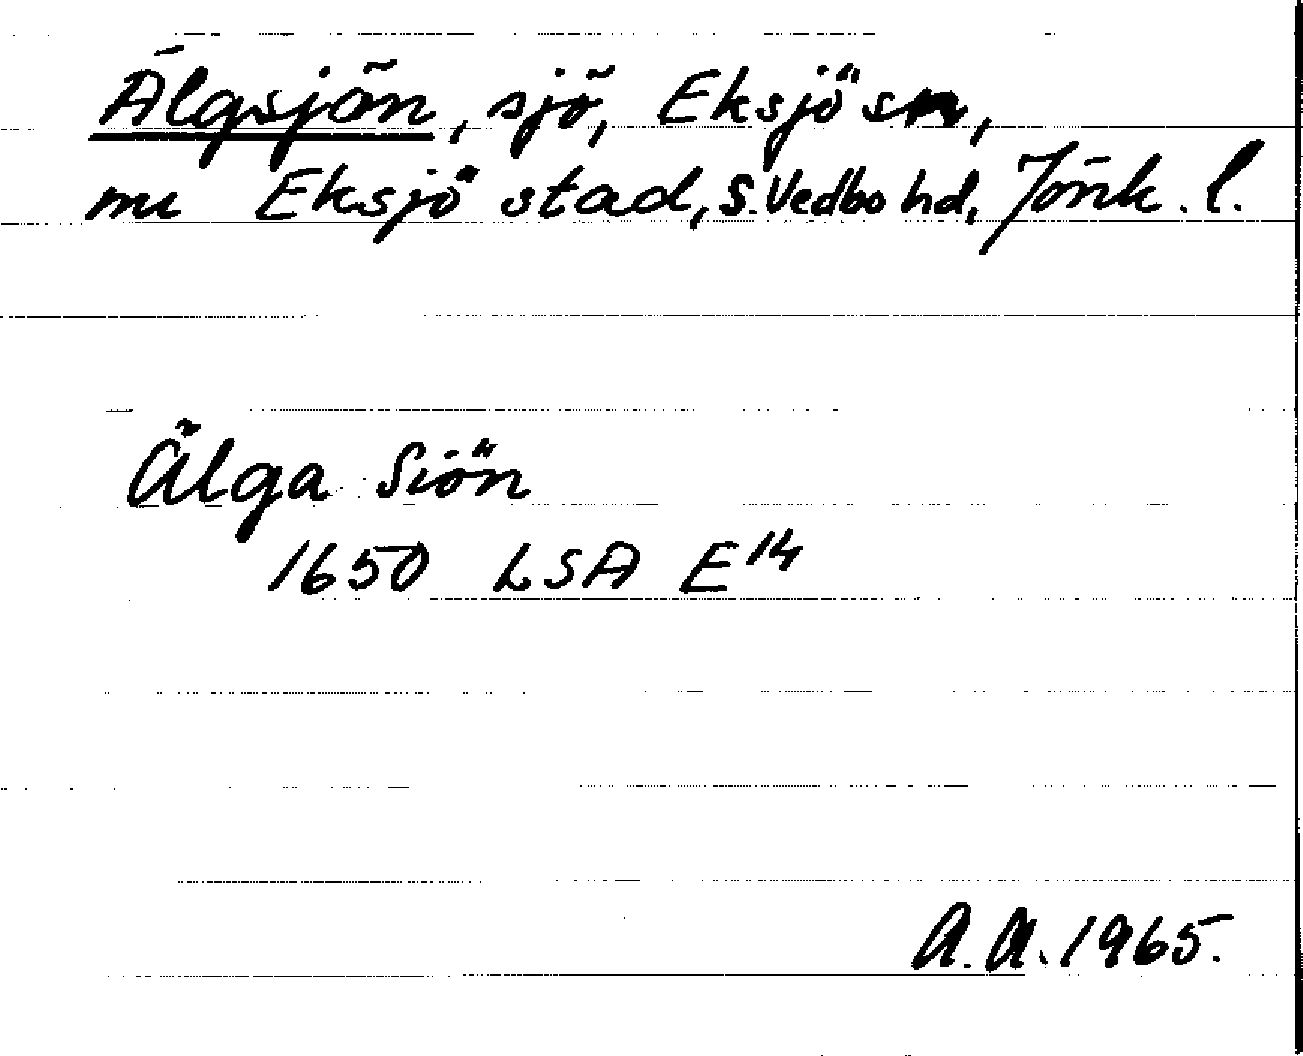 Älgsjön, sjö, Eksjö sn,
nu Eksjö stad, S. Vedbo hd, Jönk. l.
Älga Siön
1650 LSA E¹⁴
A.A. 1965.